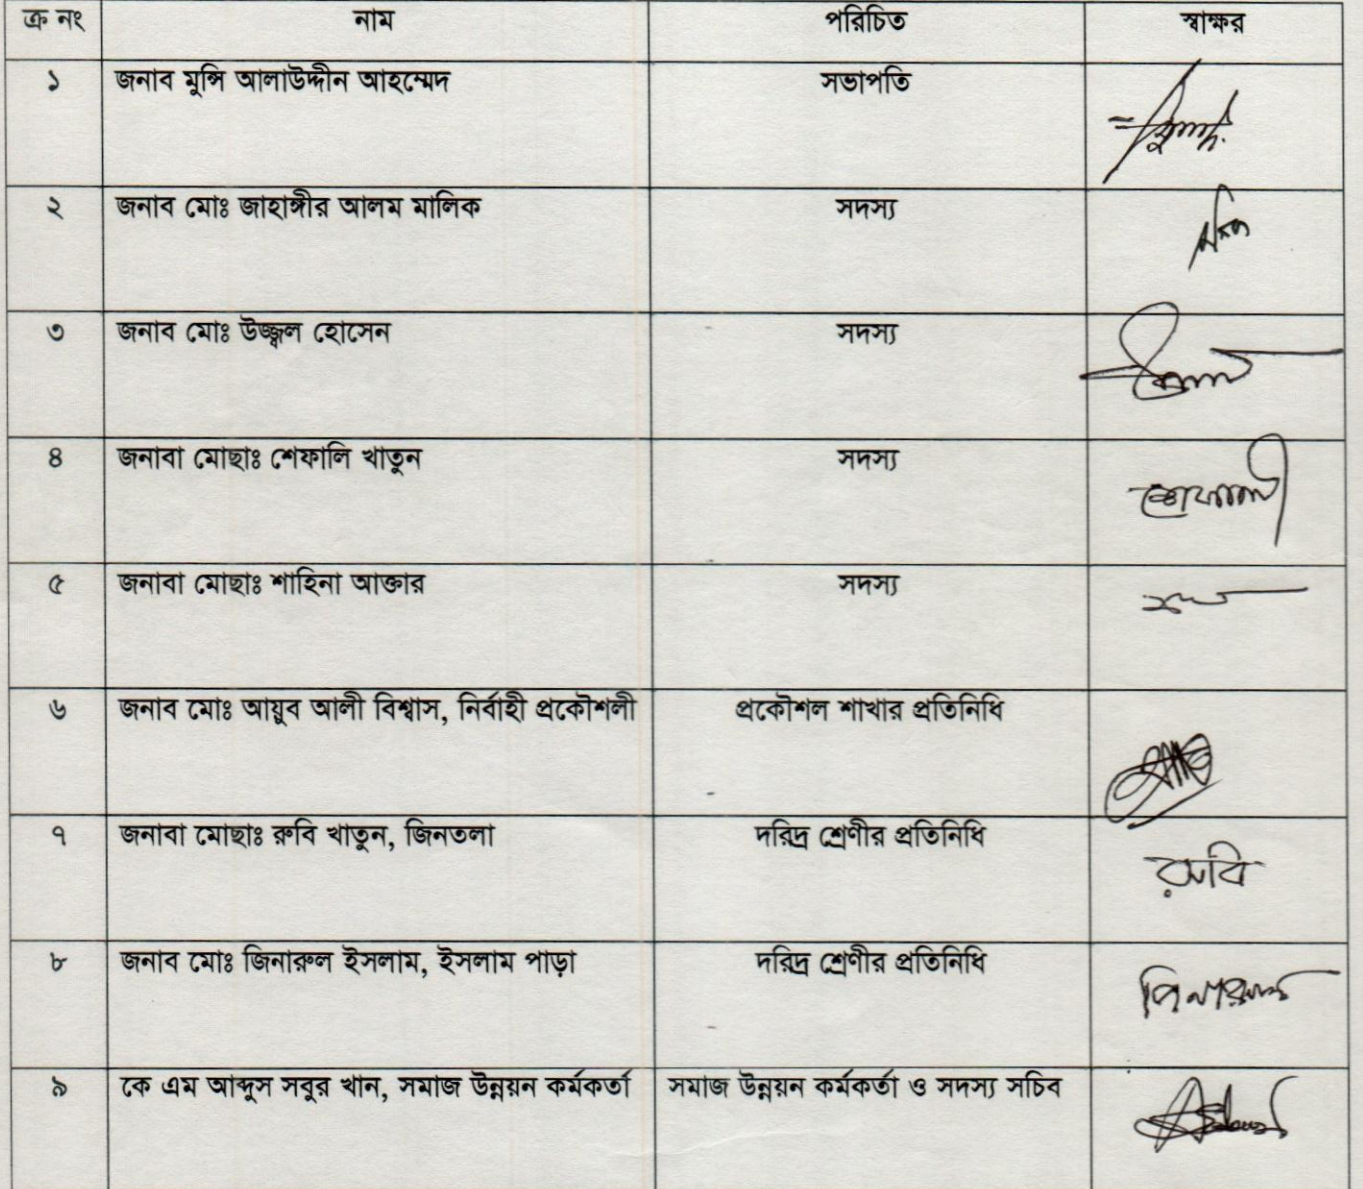 ক্র নং নাম পরিচিত স্বাক্ষর
১ জনাব মুন্সি আলাউদ্দীন আহম্মেদ সভাপতি
২ জনাব মোঃ জাহাঙ্গীর আলম মালিক সদস্য
৩ জনাব মোঃ উজ্জ্বল হোসেন সদস্য
৪ জনাবা মোছাঃ শেফালি খাতুন সদস্য শেফালী
৫ জনাবা মোছাঃ শাহিনা আক্তার সদস্য
৬ জনাব মোঃ আয়ুব আলী বিশ্বাস, নির্বাহী প্রকৌশলী প্রকৌশল শাখার প্রতিনিধি
৭ জনাবা মোছাঃ রুবি খাতুন, জিনতলা দরিদ্র শ্রেণীর প্রতিনিধি
৮ জনাব মোঃ জিনারুল ইসলাম, ইসলাম পাড়া দরিদ্র শ্রেণীর প্রতিনিধি
৯ কে এম আব্দুস সবুর খান, সমাজ উন্নয়ন কর্মকর্তা সমাজ উন্নয়ন কর্মকর্তা ও সদস্য সচিব